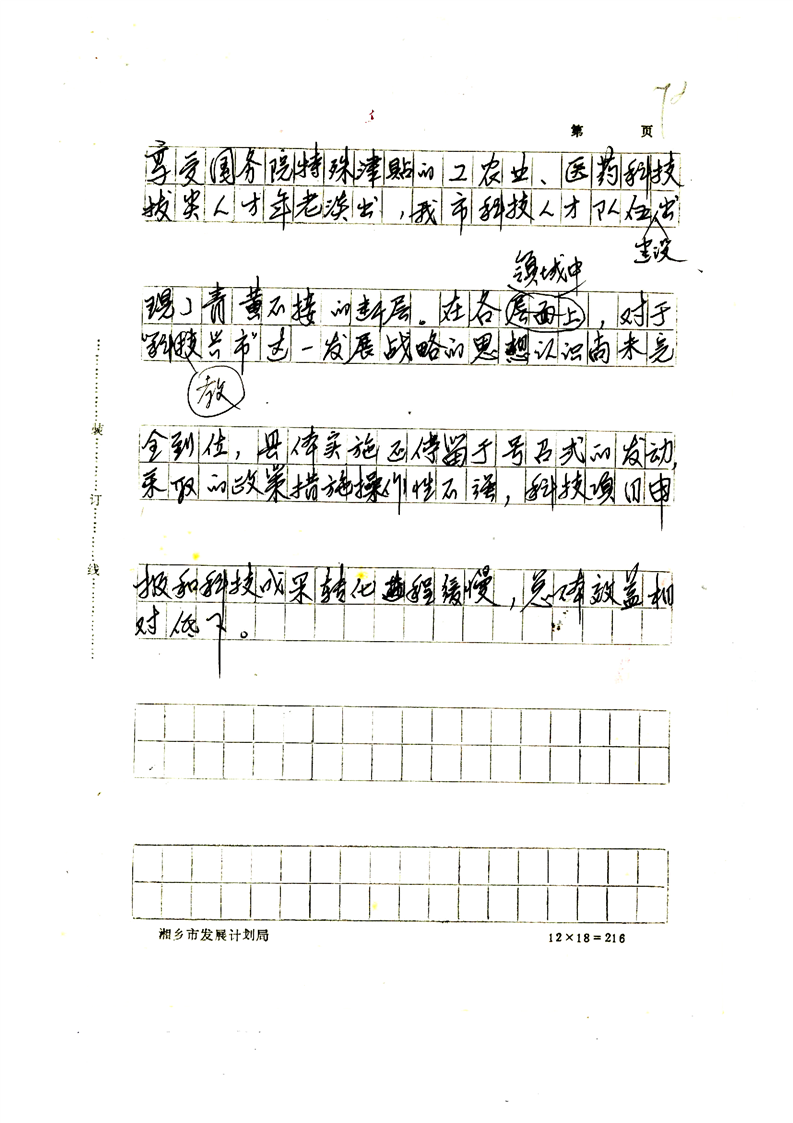 78
第 页
享受国务院特殊津贴的工农业、医药科技
拔尖人才年老淡出，我市科技人才队伍出
建设
领域中
现了青黄不接的断层。在各层面上，对于
“科技兴市”这一发展战略的思想认识尚未完
教
全到位，具体实施还停留于号召式的发动，
采取的政策措施操作性不强，科技项目申
报和科技成果转化进程缓慢，总体效益相
对低下。
装
订
线
湘乡市发展计划局 12×18=216